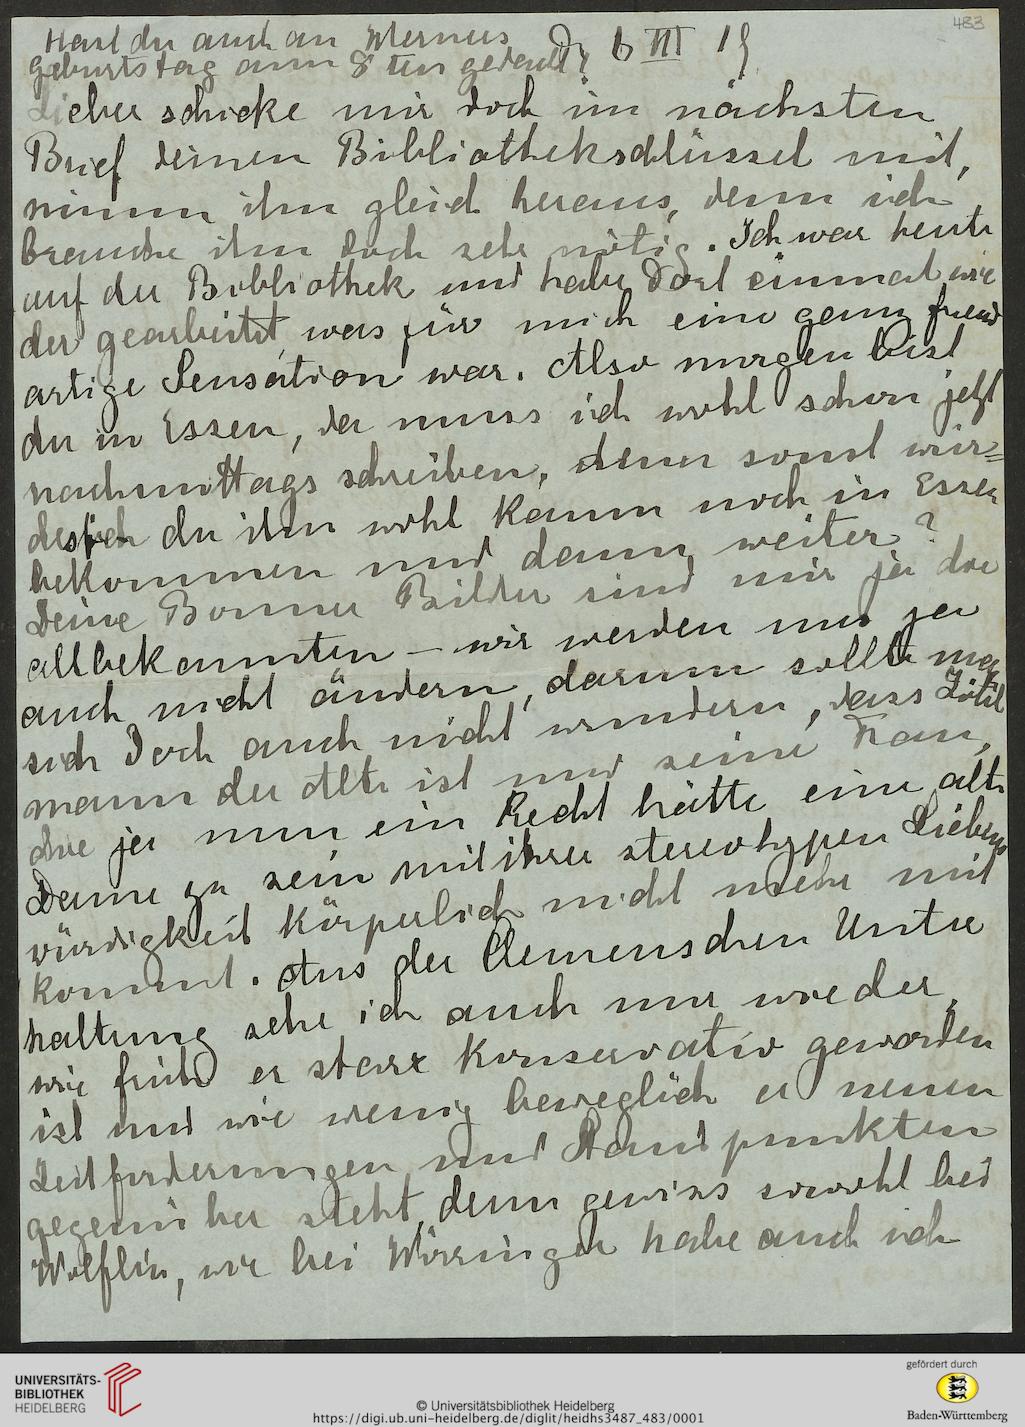 483
Hast du auch an Werners
Geburtstag am 8ten gedacht?
D. 6 III 19
Lieber schicke mir doch im nächsten
Brief deinen Bibliothekschlüssel mit,
nimm ihn gleich heraus, denn ich
brauche ihn doch sehr nötig. Ich war heute
auf der Bibliothek und habe dort einmal wie
der gearbeitet was für mich eine ganz fremd
artige Sensation war. Also morgen bist
du in Essen, da muss ich wohl schon jetzt
nachmittags schreiben, denn sonst wür=
dest du ihn wohl kaum noch in Essen
bekommen und dann weiter?
Deine Bonner Bilder sind mir ja die
altbekannten – wir werden uns ja
auch nicht ändern, darum sollte man
sich doch auch nicht wundern, dass
mann der Alte ist und seine Frau,
die ja nun ein Recht hätte eine alte
Dame zu sein mit ihrer stereotypen Liebens
würdigkeit körperlich nicht mehr mit
kommt. Aus der Clemenschen Unter
haltung sehe ich auch nur wieder,
wie früh er starr konservativ geworden
ist und wie wenig beweglich er neuen
Zeitforderungen und Standpunkten
gegenüber steht, denn gewiss sowohl bei
Wölflin, wie bei Worringer habe auch ich
UNIVERSITÄTS-
BIBLIOTHEK
HEIDELBERG
© Universitätsbibliothek Heidelberg
https://digi.ub.uni-heidelberg.de/diglit/heidhs3487_483/0001
gefördert durch
Baden-Württemberg